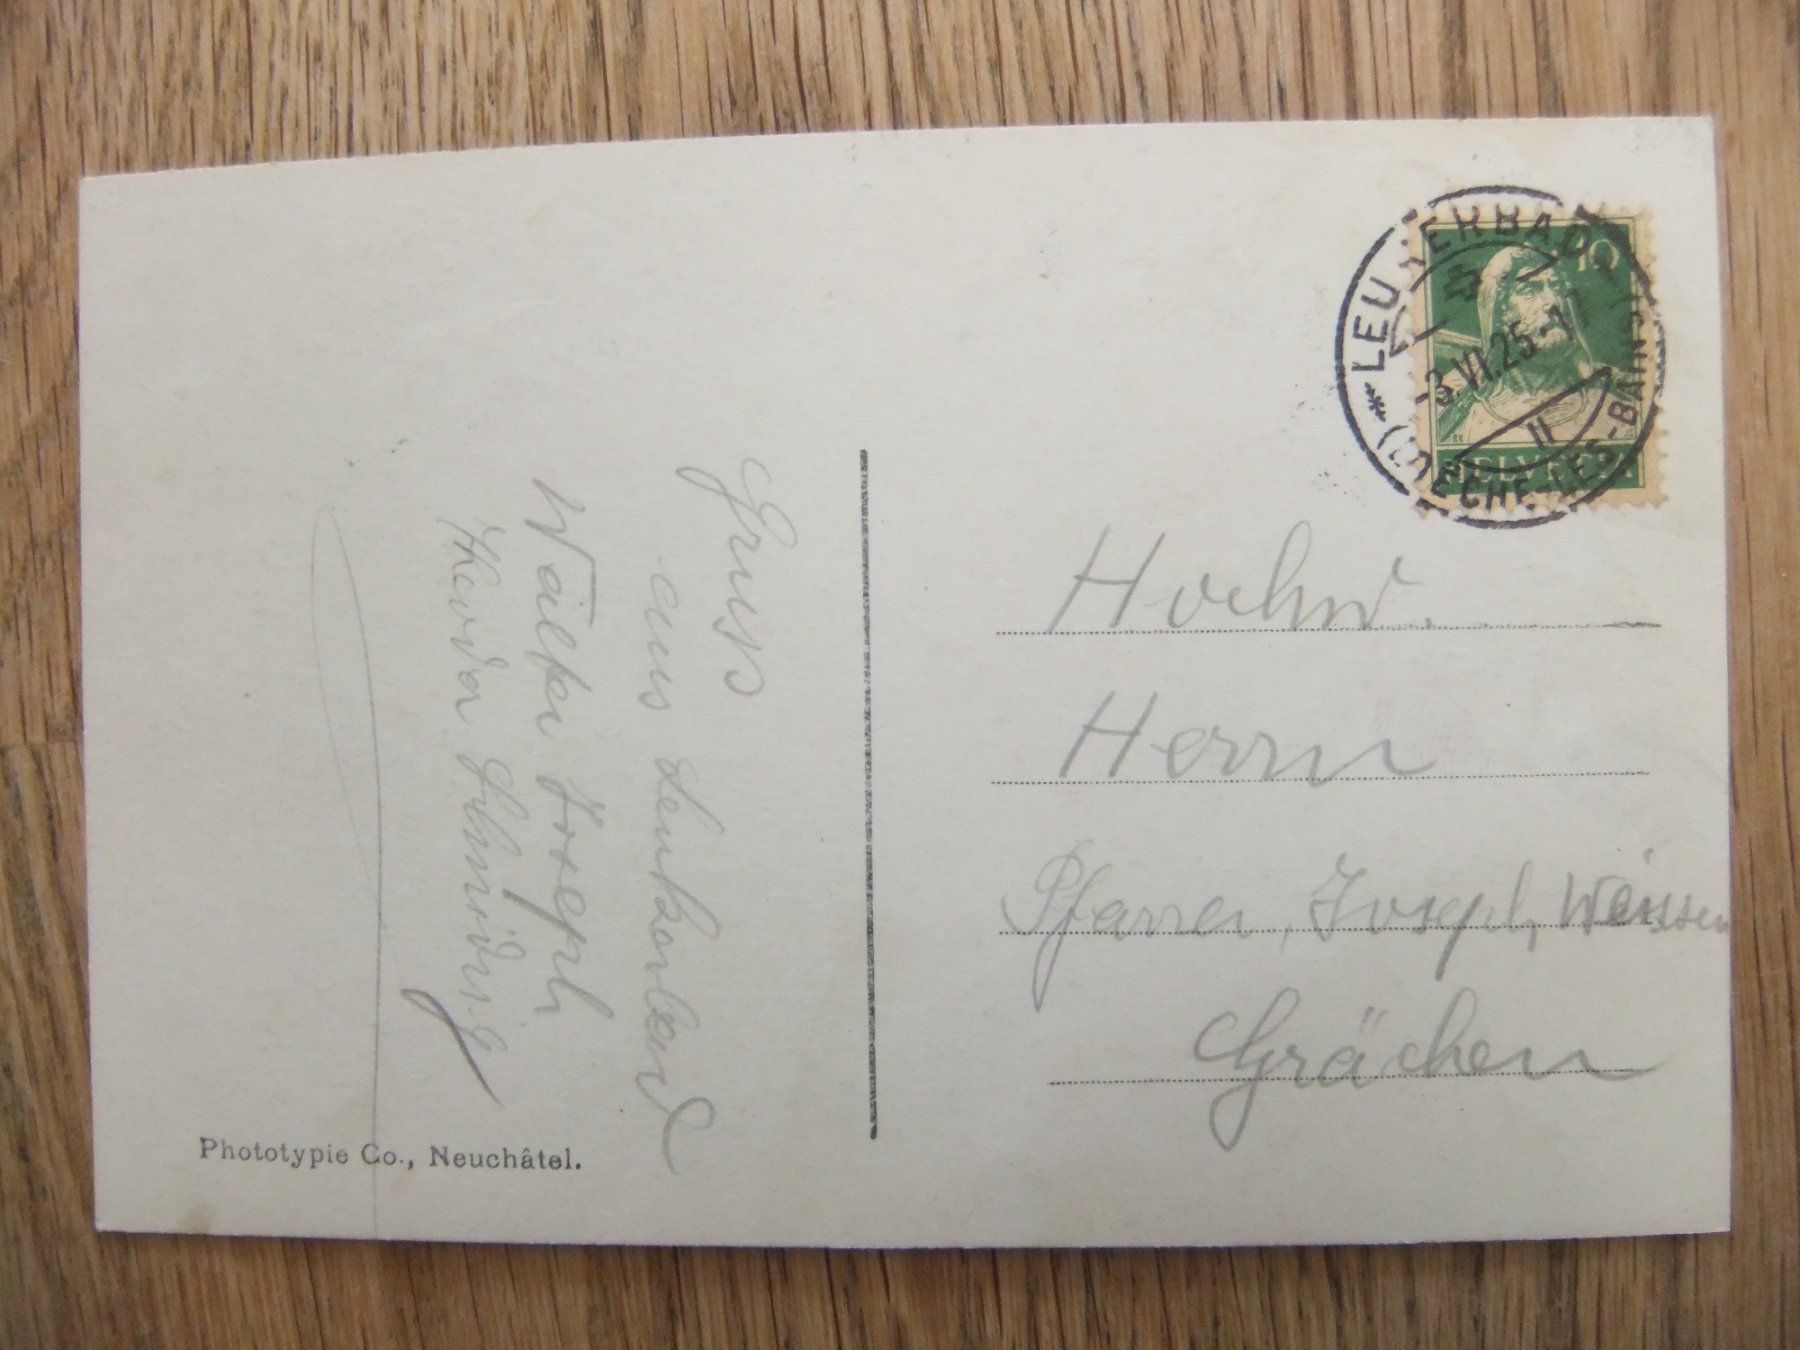 Gruss
aus Leukerbad
Walter Joseph
Theodor
Phototypie Co., Neuchâtel.
LEUKERBAD
(LOÈCHE-LES-BAINS)
10
VI.25
HELVETIA
Hochw.
Herrn
Pfarrer, Joseph, Weissen
Grächen